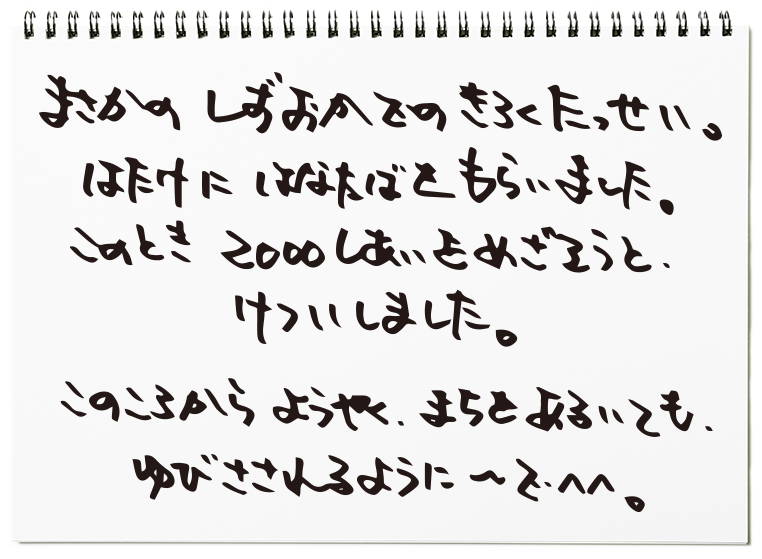 まさかの しずおかでの きろくたっせい。
はたけに はなたばを もらいました。
このとき 2000しあいをめざそうと、
けついしました。
このころから ようやく、まちをあるいても、
ゆびさされるように〜で、^^。